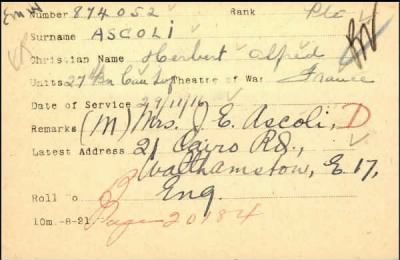 Number 874052 Rank Pte
Surname ASCOLI
Christian Name Herbert Alfred
Units 27 Bn Can Inf Theatre of War France
Date of Service 27/11/16
Remarks (M) Mrs. J. E. Ascoli, D
Latest Address 21 Cairo Rd.,
Walthamstow, E 17,
Roll o Eng.
10m.-8-21. Page 20184